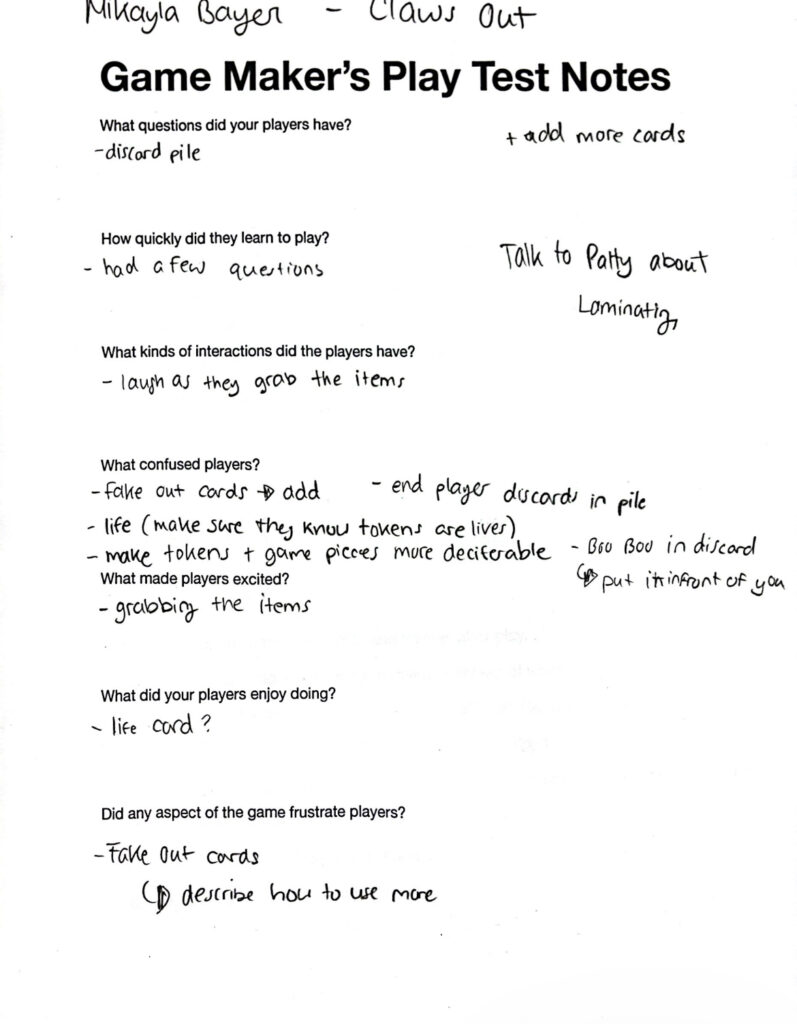 Mikayla Bayer - Claws Out
Game Maker's Play Test Notes
What questions did your players have?
- discard pile
+ add more cards
How quickly did they learn to play?
- had a few questions
Talk to Patty about
Laminating
What kinds of interactions did the players have?
- laugh as they grab the items
What confused players?
- fake out cards → add
- end player discards in pile
- life (make sure they know tokens are lives)
- make tokens + game pieces more deciferable
- Boo Boo in discard
↳ put it infront of you
What made players excited?
- grabbing the items
What did your players enjoy doing?
- life card?
Did any aspect of the game frustrate players?
- Fake Out cards
↳ describe how to use more